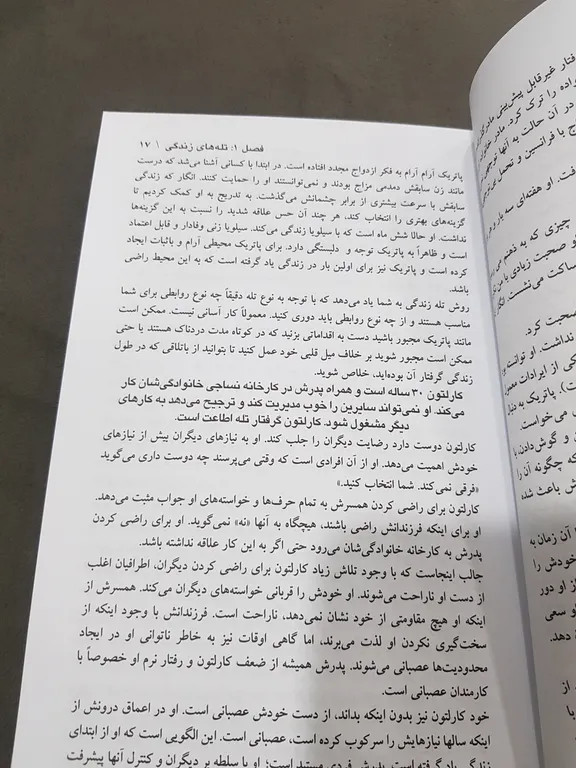 فصل ۱: تله‌های زندگی | ۱۷
پاتریک آرام آرام به فکر ازدواج مجدد افتاده است. در ابتدا با کسانی آشنا می‌شد که درست
مانند زن سابقش دمدمی مزاج بودند و نمی‌توانستند او را حمایت کنند. انگار که زندگی
سابقش با سرعت بیشتری از برابر چشمانش می‌گذشت. به تدریج به او کمک کردیم تا
گزینه‌های بهتری را انتخاب کند، هر چند آن حس علاقه شدید را نسبت به این گزینه‌ها
نداشت. او حالا شش ماه است که با سیلویا زندگی می‌کند. سیلویا زنی وفادار و قابل اعتماد
است و ظاهراً به پاتریک توجه و دلبستگی دارد. برای پاتریک محیطی آرام و باثبات ایجاد
کرده است و پاتریک نیز برای اولین بار در زندگی یاد گرفته است که به این محیط راضی
باشد.
روش تله زندگی به شما یاد می‌دهد که با توجه به نوع تله دقیقاً چه نوع روابطی برای شما
مناسب هستند و از چه نوع روابطی باید دوری کنید. معمولاً کار آسانی نیست. ممکن است
مانند پاتریک مجبور باشید دست به اقداماتی بزنید که در کوتاه مدت دردناک هستند یا حتی
ممکن است مجبور شوید بر خلاف میل قلبی خود عمل کنید تا بتوانید از باتلاقی که در طول
زندگی گرفتار آن بوده‌اید، خلاص شوید.
کارلتون ۳۰ ساله است و همراه پدرش در کارخانه نساجی خانوادگی‌شان کار
می‌کند. او نمی‌تواند سایرین را خوب مدیریت کند و ترجیح می‌دهد به کارهای
دیگر مشغول شود. کارلتون گرفتار تله اطاعت است.
کارلتون دوست دارد رضایت دیگران را جلب کند. او به نیازهای دیگران بیش از نیازهای
خودش اهمیت می‌دهد. او از آن افرادی است که وقتی می‌پرسند چه دوست داری می‌گوید
«فرقی نمی‌کند. شما انتخاب کنید.»
کارلتون برای راضی کردن همسرش به تمام حرف‌ها و خواسته‌های او جواب مثبت می‌دهد.
او برای اینکه فرزندانش راضی باشند، هیچگاه به آنها «نه» نمی‌گوید. او برای راضی کردن
پدرش به کارخانه خانوادگی‌شان می‌رود حتی اگر به این کار علاقه نداشته باشد.
جالب اینجاست که با وجود تلاش زیاد کارلتون برای راضی کردن دیگران، اطرافیان اغلب
از دست او ناراحت می‌شوند. او خودش را قربانی خواسته‌های دیگران می‌کند. همسرش از
اینکه او هیچ مقاومتی از خود نشان نمی‌دهد، ناراحت است. فرزندانش با وجود اینکه از
سخت‌گیری نکردن او لذت می‌برند، اما گاهی اوقات نیز به خاطر ناتوانی او در ایجاد
محدودیت‌ها عصبانی می‌شوند. پدرش همیشه از ضعف کارلتون و رفتار نرم او خصوصاً با
کارمندان عصبانی است.
خود کارلتون نیز بدون اینکه بداند، از دست خودش عصبانی است. او در اعماق درونش از
اینکه سالها نیازهایش را سرکوب کرده است، عصبانی است. این الگویی است که او از ابتدای
زندگی یاد گرفته است. پدرش فردی مستبد است؛ او با سلطه بر دیگران و کنترل آنها پیشرفت